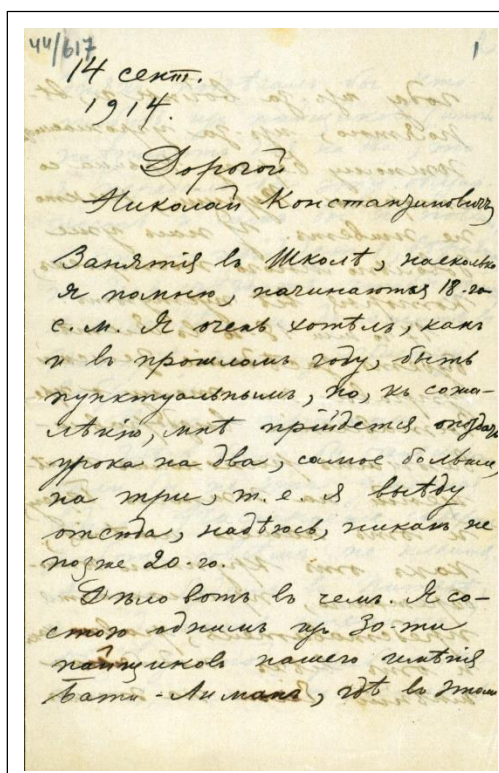 44/617
1
14 сент.
1914.
Дорогой
Николай Константинович,
Занятія въ Школѣ, насколько
я помню, начинаются 18-го
с. м. Я очень хотѣлъ, какъ
и въ прошломъ году, быть
пунктуальнымъ, но, къ сожа-
лѣнію, мнѣ прійдется опоздать
урока на два, самое большее,
на три, т. е. я выѣду
отсюда, надѣюсь, никакъ не
позже 20-го.
Дѣло вотъ въ чемъ. Я со-
стою однимъ изъ 30-ти
пайщиковъ нашего имѣнія
Бати-Лимана, гдѣ въ этомъ